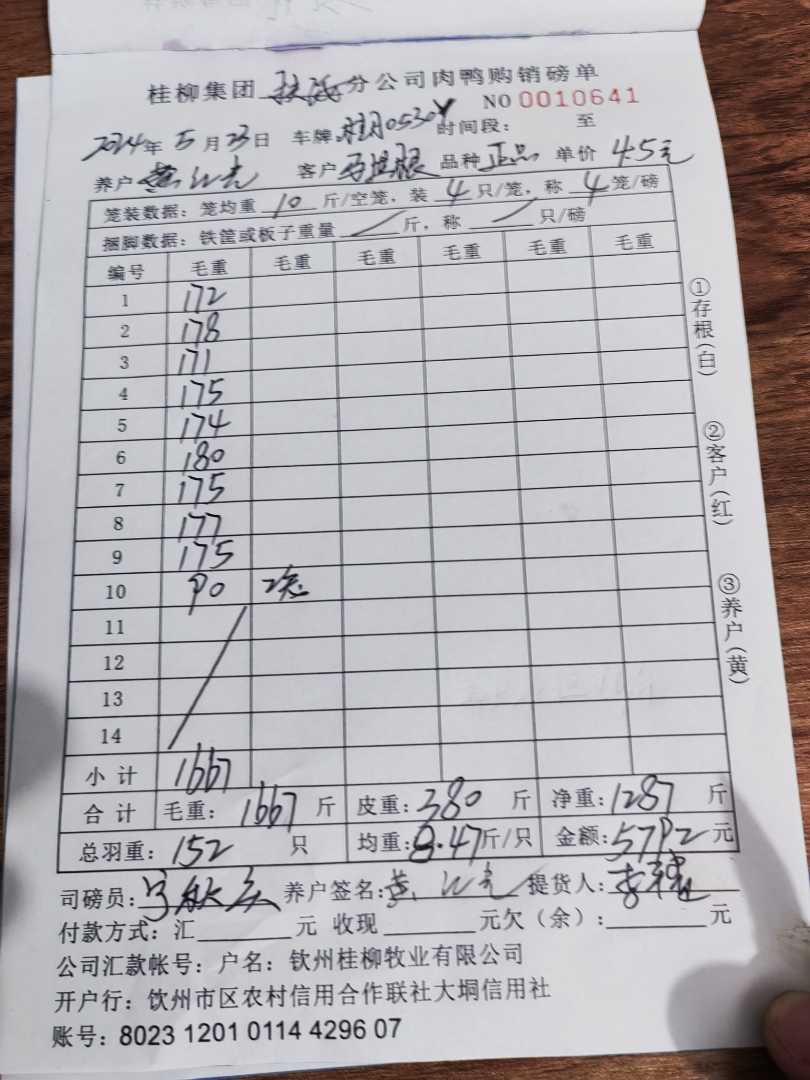 桂柳集团 分公司肉鸭购销磅单
NO 0010641
2024年5月23日 车牌: 桂 0530 时间段: 至
养户 黄 客户 品种 正品 单价 4.5元
笼装数据: 笼均重 10 斤/空笼, 装 4 只/笼, 称 4 笼/磅
捆脚数据: 铁筐或板子重量 / 斤, 称 / 只/磅
编号 毛重 毛重 毛重 毛重 毛重 毛重
1 172
2 178
3 171
4 175
5 174
6 180
7 175
8 177
9 175
10 90 2笼
11
12
13
14
小计 1667
合计 毛重: 1667 斤 皮重: 380 斤 净重: 1287 斤
总羽重: 152 只 均重: 8.47斤/只 金额: 5792元
司磅员: 养户签名: 黄 提货人: 李
付款方式: 汇 元 收现 元欠(余): 元
公司汇款帐号: 户名: 钦州桂柳牧业有限公司
开户行: 钦州市区农村信用合作联社大垌信用社
账号: 8023 1201 0114 4296 07
①存根(白)
②客户(红)
③养户(黄)